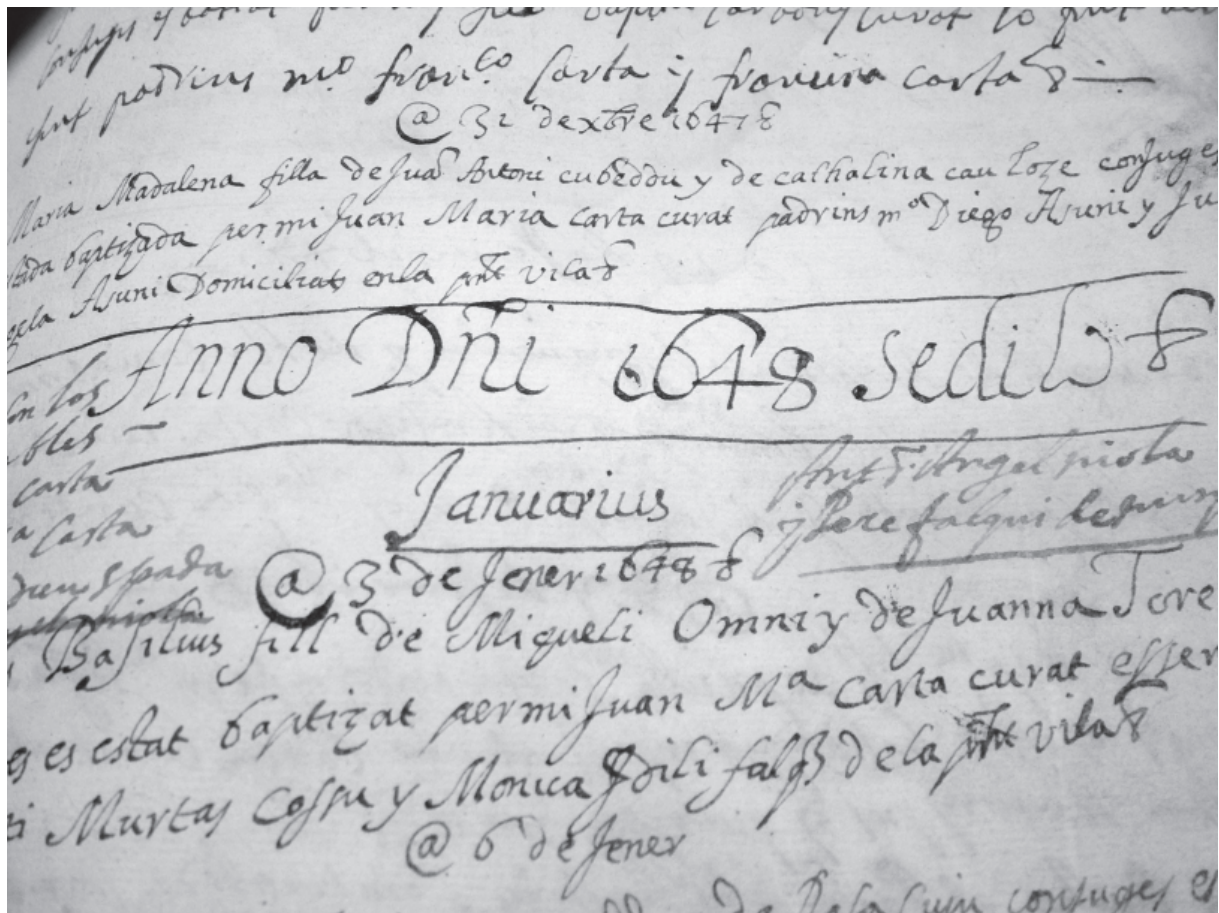 padrins mº franco carta y carta
@ 31 de xbre 1647
Maria Madalena filla de Jua Antoni cubeddu y de cathalina cau Loze conjuges
baptizada per mi Juan Maria carta curat padrins mº Diego Asuni y Ju
Asuni Domiciliats en la pnt vila
Anno Dñi 1648 Sedilo
en los
bles
carta
carta
spada
Januarius
Antº Angel piola
y Pere falqui
@ 3 de Jener 1648
Basilius fill de Miqueli Omni y de Juanna Tore
es estat baptizat per mi Juan Mª Carta curat essen
Murtas Cossu y Monica de la pnt vila
@ 6 de Jener
conjuges es